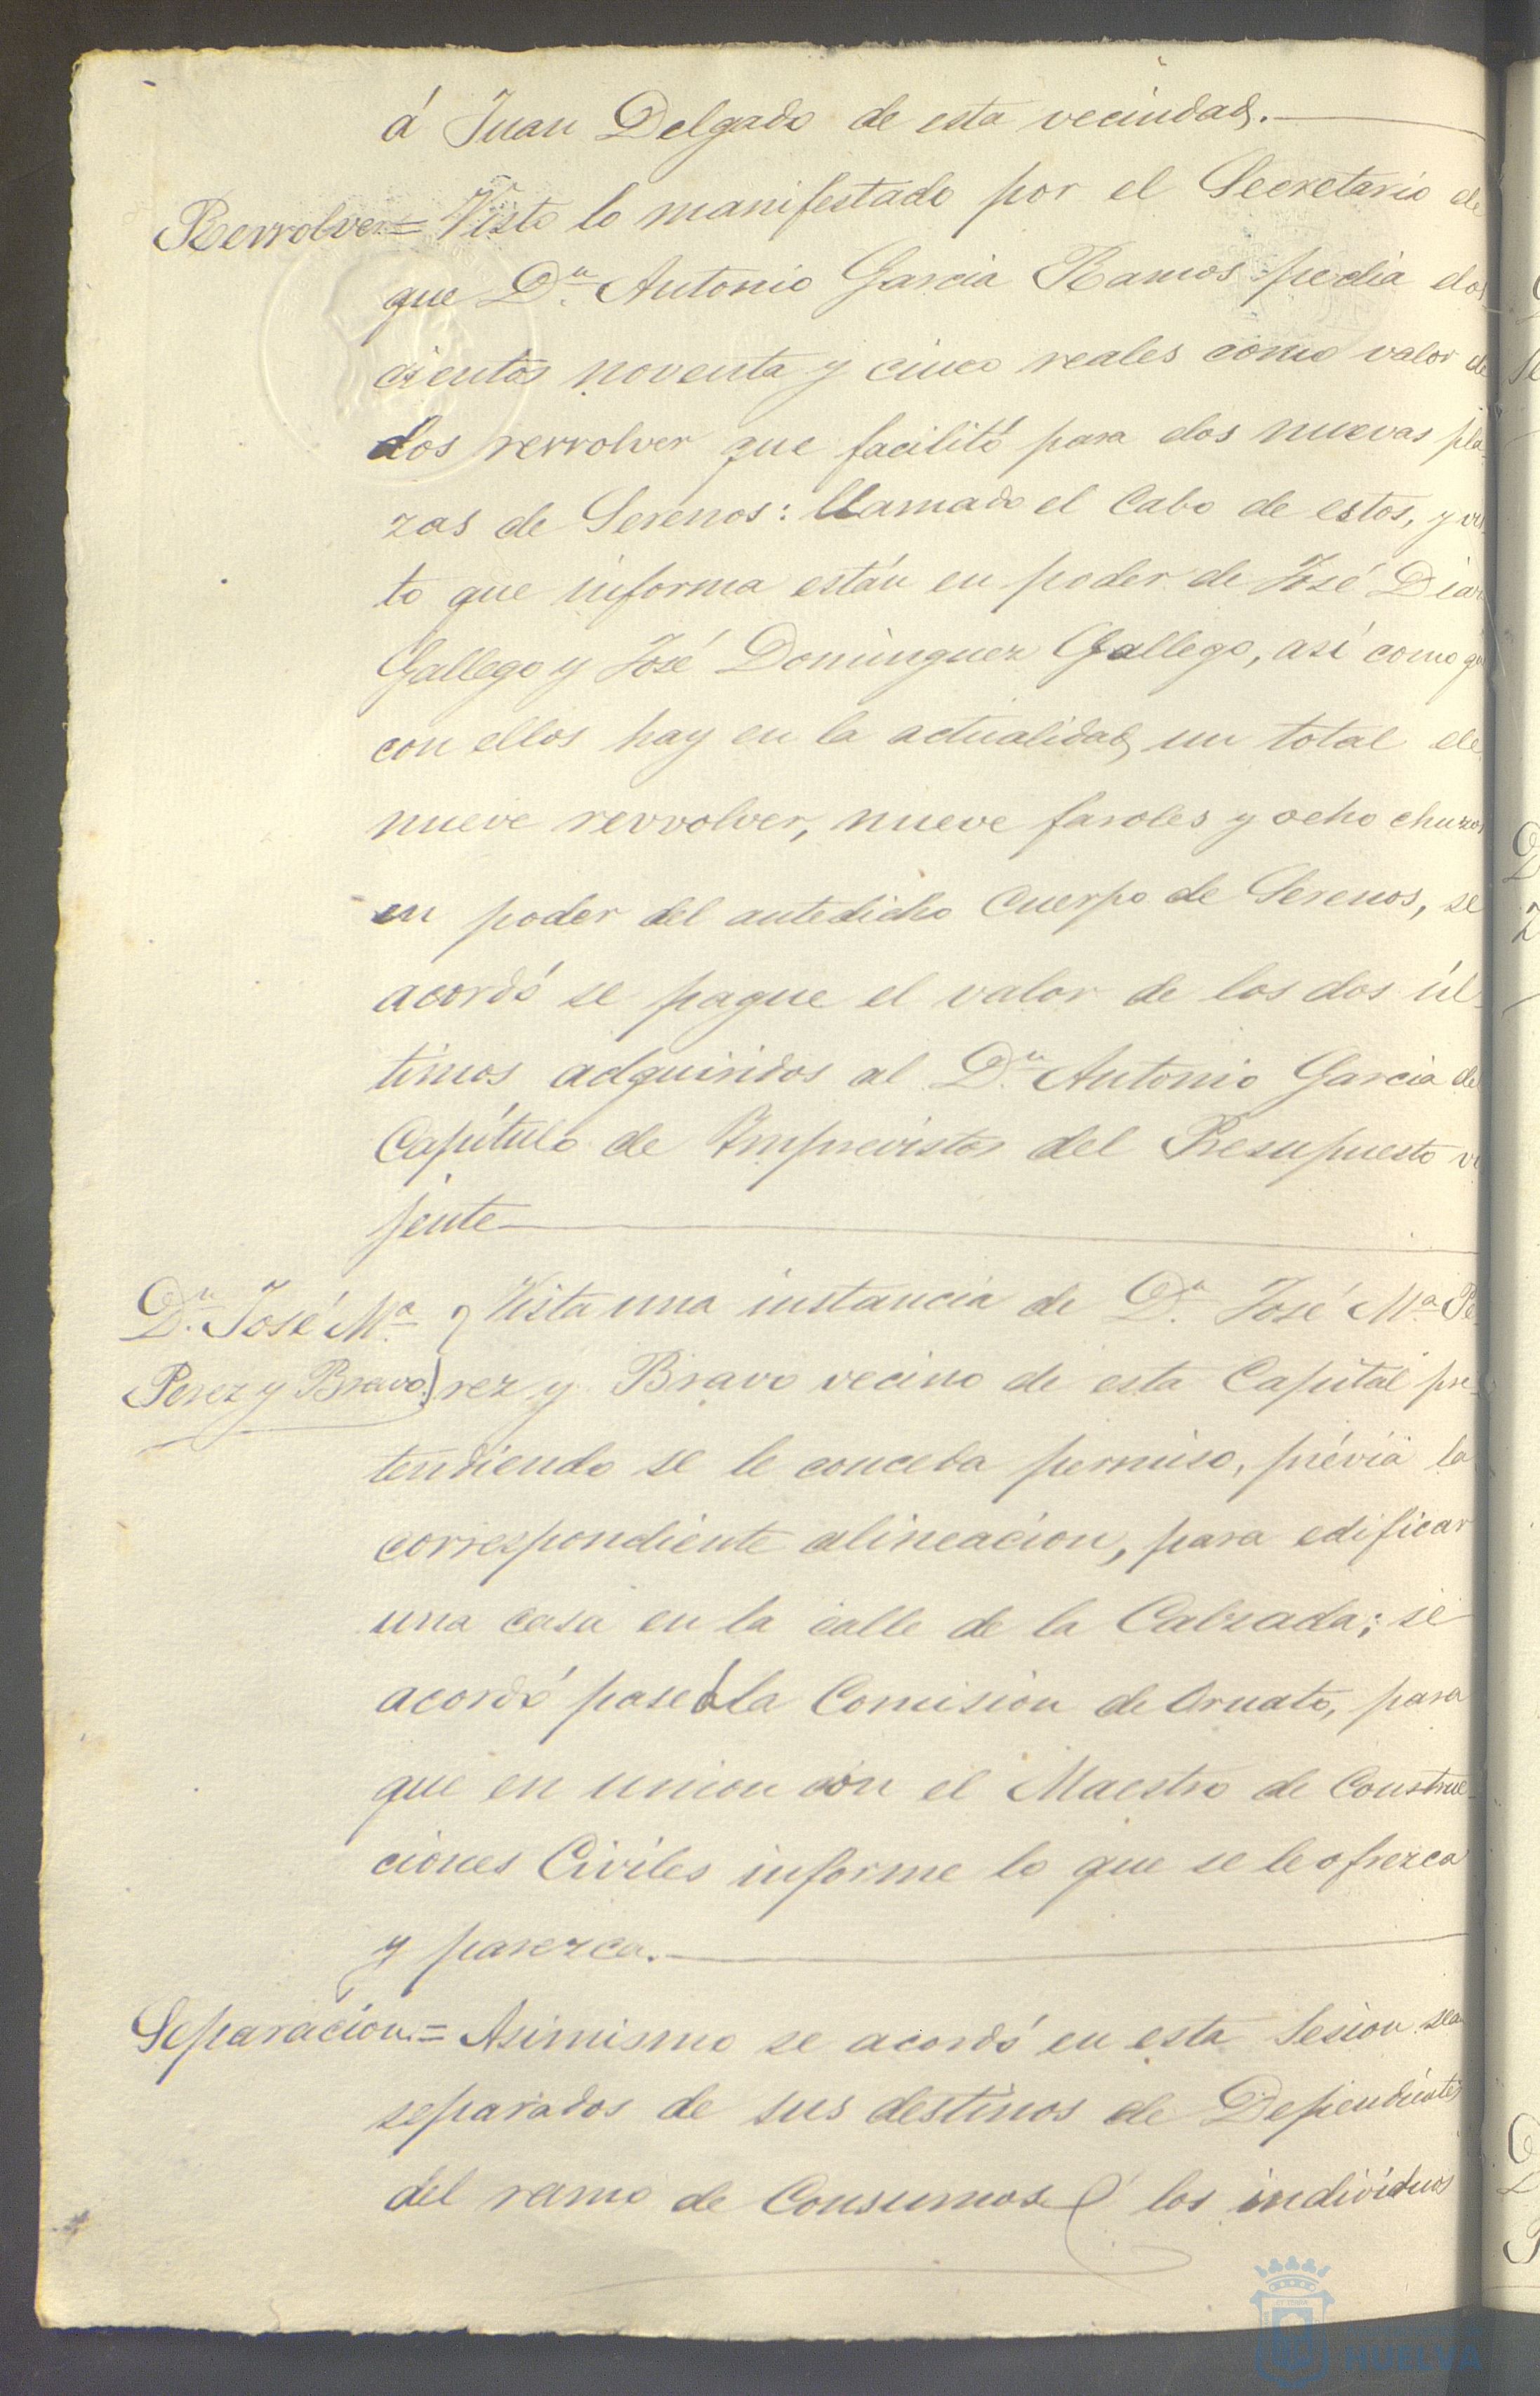 á Juan Delgado de esta vecindad.
Revrolver = Visto lo manifestado por el Secretario de
que Dn. Antonio Garcia Ramos pedia dos
cientos noventa y cinco reales como valor de
dos revrolver que facilitó para dos nuevas pla
zas de Serenos: llamado el Cabo de estos, y vis
to que informa están en poder de José Diaz
Gallego y José Dominguez Gallego, así como que
con ellos hay en la actualidad un total de
nueve revvolver, nueve faroles y ocho chuzos
en poder del antedicho Cuerpo de Serenos, se
acordó se pague el valor de los dos úl-
timos adquiridos al Dn. Antonio Garcia del
Capítulo de Imprevistos del Presupuesto vi
jente
Dn. José Ma. Vista una instancia de Dn. José Ma. Pe
Perez y Bravo.) rez y Bravo vecino de esta Capital pre-
tendiendo se le conceda permiso, prévia la
correspondiente alineacion, para edificar
una casa en la calle de la Calzada; se
acordó pase á la Comision de Ornato, para
que en union con el Maestro de Construc-
ciones Civiles informe lo que se le ofrezca
y parezca.
Separacion = Asimismo se acordó en esta Sesion sean
separados de sus destinos de Dependientes
del ramo de Consumos á los individuos
HUELVA